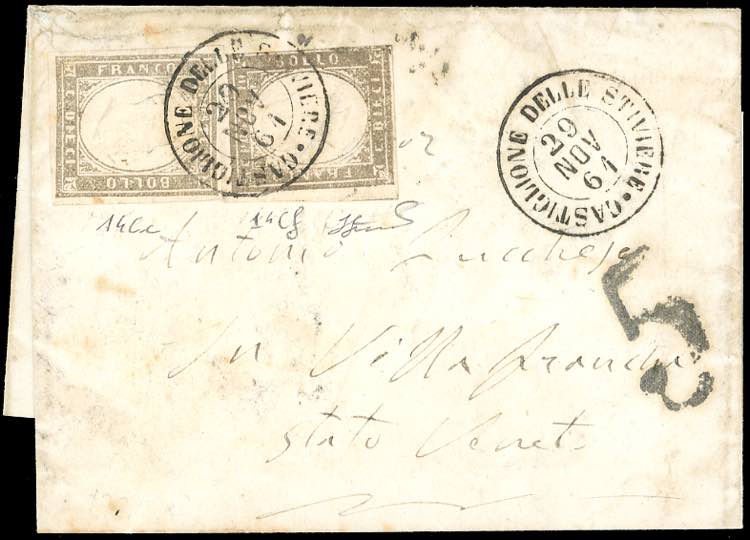 FRANCO BOLLO
BOLLO FRANCO
CASTIGLIONE DELLE STIVIERE
29
NOV
61
CASTIGLIONE DELLE STIVIERE
29
NOV
61
14Cc 14Cf
Antonio Lucchese
In Villafranca
Stato Veneto
5